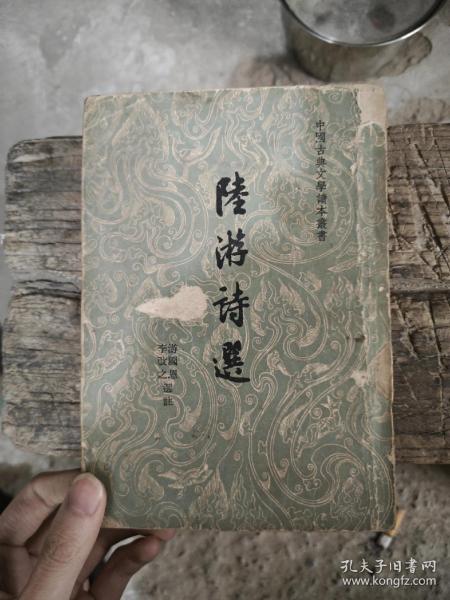 中國古典文學讀本叢書
陸游詩選
游國恩
李改之選註
孔夫子旧书网
www.kongfz.com